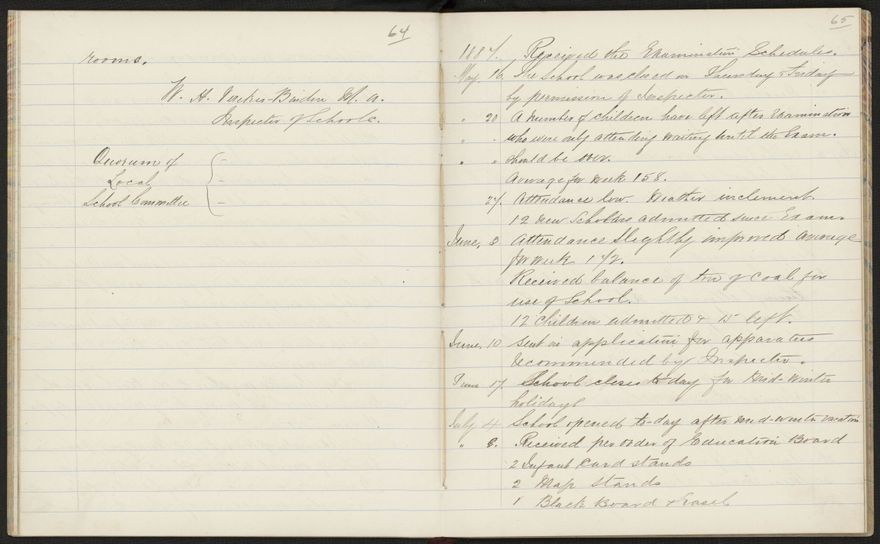 64
rooms.
W. H.
Inspector of Schools.
Quorum of
Local
School Committee
65
1887. Received the Examination Schedules.
May 16 The School was closed on Thursday & Friday
by permission of Inspector.
" 20 A number of children have left after Examination
" " who were only attending waiting until the Exam.
" " should be over.
Average for week 158.
27. Attendance low. Weather inclement
12 new Scholars admitted since Exam.
June, 3 Attendance slightly improved average
for week 172.
Received balance of ton of Coal for
use of School.
12 Children admitted & 15 left.
June, 10 Sent in application for apparatus
recommended by Inspector.
June 17. School closes to day for Mid-winter
holidays
July 4 School opened to-day after mid-winter vacation
" 8. Received per order of Education Board
2 Infant Card stands
2 Map Stands
1 Black Board & Easel